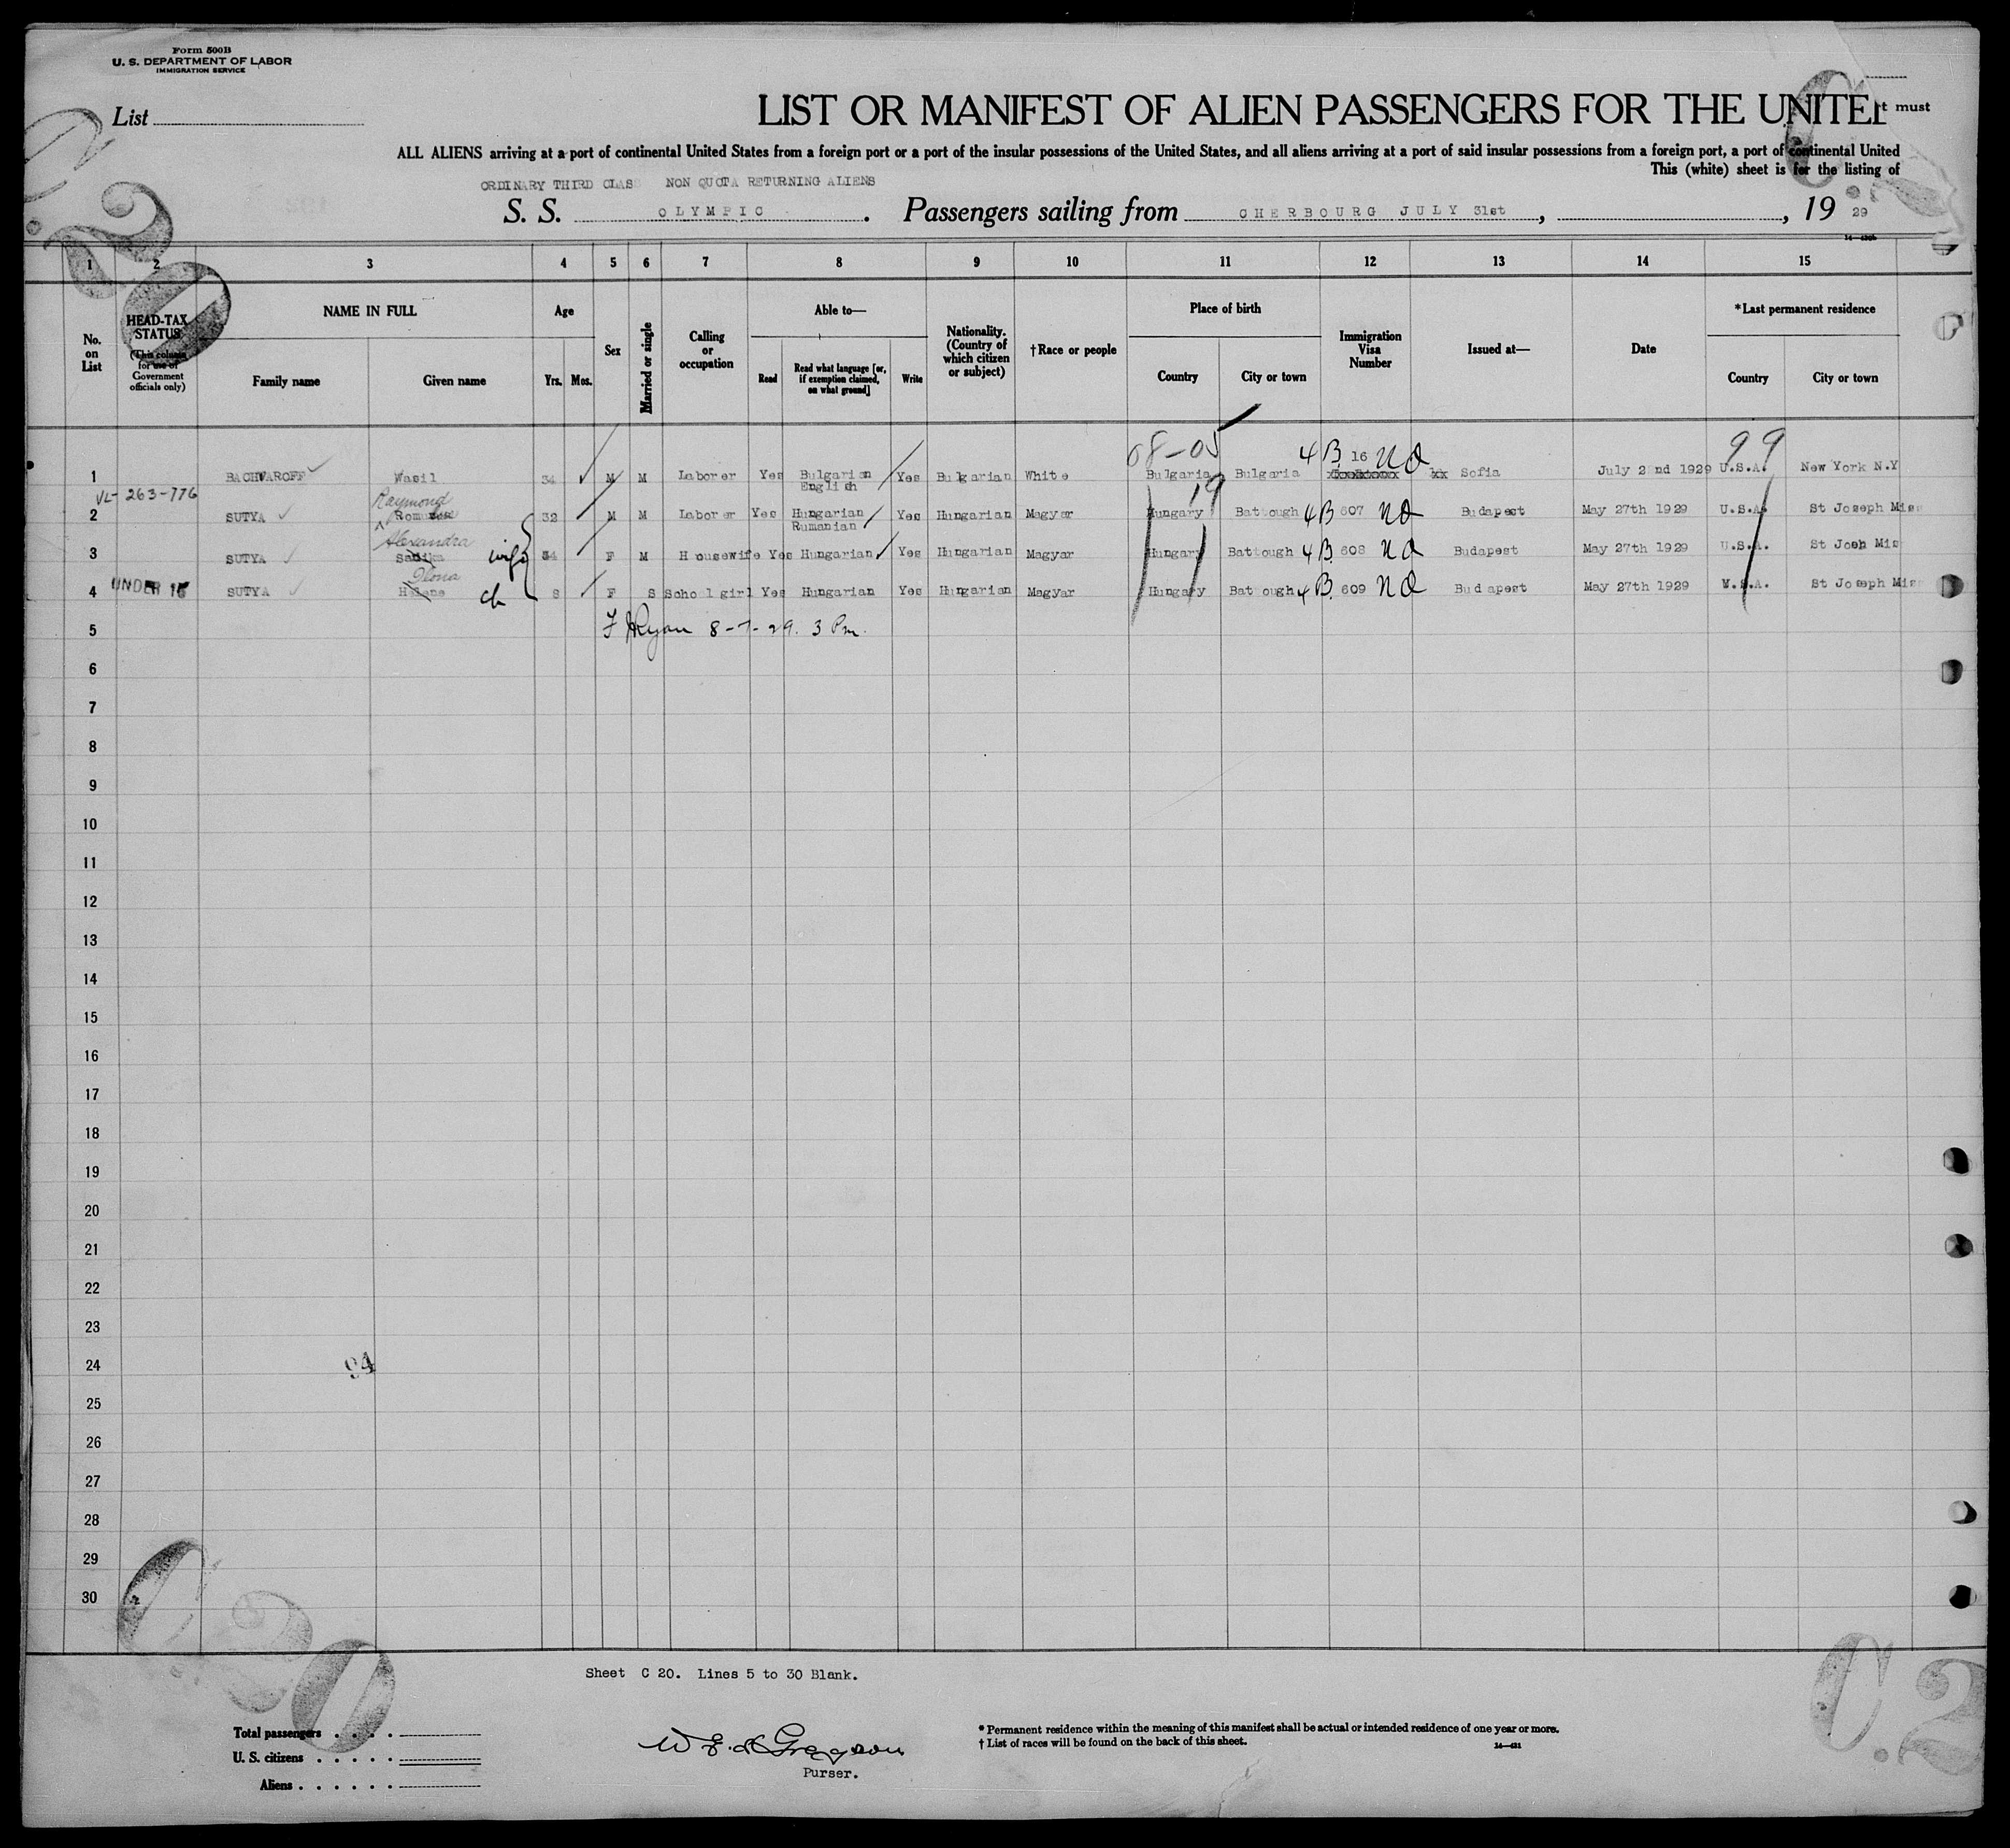 Form 500B
U. S. DEPARTMENT OF LABOR
IMMIGRATION SERVICE
List
LIST OR MANIFEST OF ALIEN PASSENGERS FOR THE UNITE
t must
ALL ALIENS arriving at a port of continental United States from a foreign port or a port of the insular possessions of the United States, and all aliens arriving at a port of said insular possessions from a foreign port, a port of continental United
This (white) sheet is for the listing of
ORDINARY THIRD CLAS NON QUOTA RETURNING ALIENS
S. S. OLYMPIC . Passengers sailing from CHERBOURG JULY 31st , , 19 29
1 2 3 4 5 6 7 8 9 10 11 12 13 14 15
No. on List
HEAD-TAX STATUS (This column for use of Government officials only)
NAME IN FULL
Family name Given name
Age
Yrs. Mos.
Sex
Married or single
Calling or occupation
Able to—
Read Read what language [or, if exemption claimed, on what ground] Write
Nationality. (Country of which citizen or subject)
†Race or people
Place of birth
Country City or town
Immigration Visa Number
Issued at—
Date
*Last permanent residence
Country City or town
68-05 99
1 BACHVAROFF Wasil 34 M M Laborer Yes Bulgarian English Yes Bulgarian White Bulgaria Bulgaria 4B 16 NQ Sofia July 22nd 1929 U.S.A. New York N.Y
VL- 263-776
Raymond 19
2 SUTYA 32 M M Laborer Yes Hungarian Rumanian Yes Hungarian Magyar Hungary Battough 4B 607 NQ Budapest May 27th 1929 U.S.A. St Joseph Miss
Alexandra
3 SUTYA wife 34 F M Housewife Yes Hungarian Yes Hungarian Magyar Hungary Battough 4B 608 NQ Budapest May 27th 1929 U.S.A. St Joeh Mis
Ilona
4 UNDER 16 SUTYA Helane ch 8 F S School girl Yes Hungarian Yes Hungarian Magyar Hungary Battough 4B. 609 NQ Budapest May 27th 1929 U.S.A. St Joseph Miss
5 Ryan 8-7-29. 3 Pm.
6
7
8
9
10
11
12
13
14
15
16
17
18
19
20
21
22
23
24
94
25
26
27
28
29
30
Sheet C 20. Lines 5 to 30 Blank.
C.20
C.2
Total passengers
U. S. citizens
Aliens
Purser.
* Permanent residence within the meaning of this manifest shall be actual or intended residence of one year or more.
† List of races will be found on the back of this sheet.